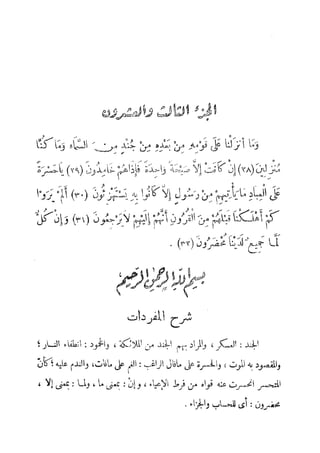 الجزء الثالث والعشرون
وَمَا أَنزَلْنَا عَلَى قَوْمِهِ مِنْ بَعْدِهِ مِنْ جُنْدٍ مِنَ السَّمَاءِ وَمَا كُنَّا
مُنْزِلِينَ (٢٨) إِنْ كَانَتْ إِلاَّ صَيْحَةً وَاحِدَةً فَإِذَاهُمْ خَامِدُونَ (٢٩) يَاحَسْرَةً
عَلَى الْعِبَادِ مَا يَأْتِيهِمْ مِنْ رَسُولٍ إِلاَّ كَانُوا بِهِ يَسْتَهْزِئُونَ (٣٠) أَلَمْ يَرَوْا
كَمْ أَهْلَكْنَا قَبْلَهُمْ مِنَ الْقُرُونِ أَنَّهُمْ إِلَيْهِمْ لاَ يَرْجِعُونَ (٣١) وَإِنْ كُلٌّ
لَمَّا جَمِيعٌ لَدَيْنَا مُحْضَرُونَ (٣٢) .
بسم الله الرحمن الرحيم
شرح المفردات
الجند : العسكر ، والمراد بهم الجند من الملائكة ، والخمود : انطفاء النار ؛
والمقصود به الموت ، والحسرة على ماقال الراغب : الغم على مافات، والندم عليه ؛ كأن
المتحسر انحسرت عنه قواه من فرط الإعياء ، وإن : بمعنى ما ، ولما : بمعنى إلا ،
محضرون : أى للحساب والجزاء .